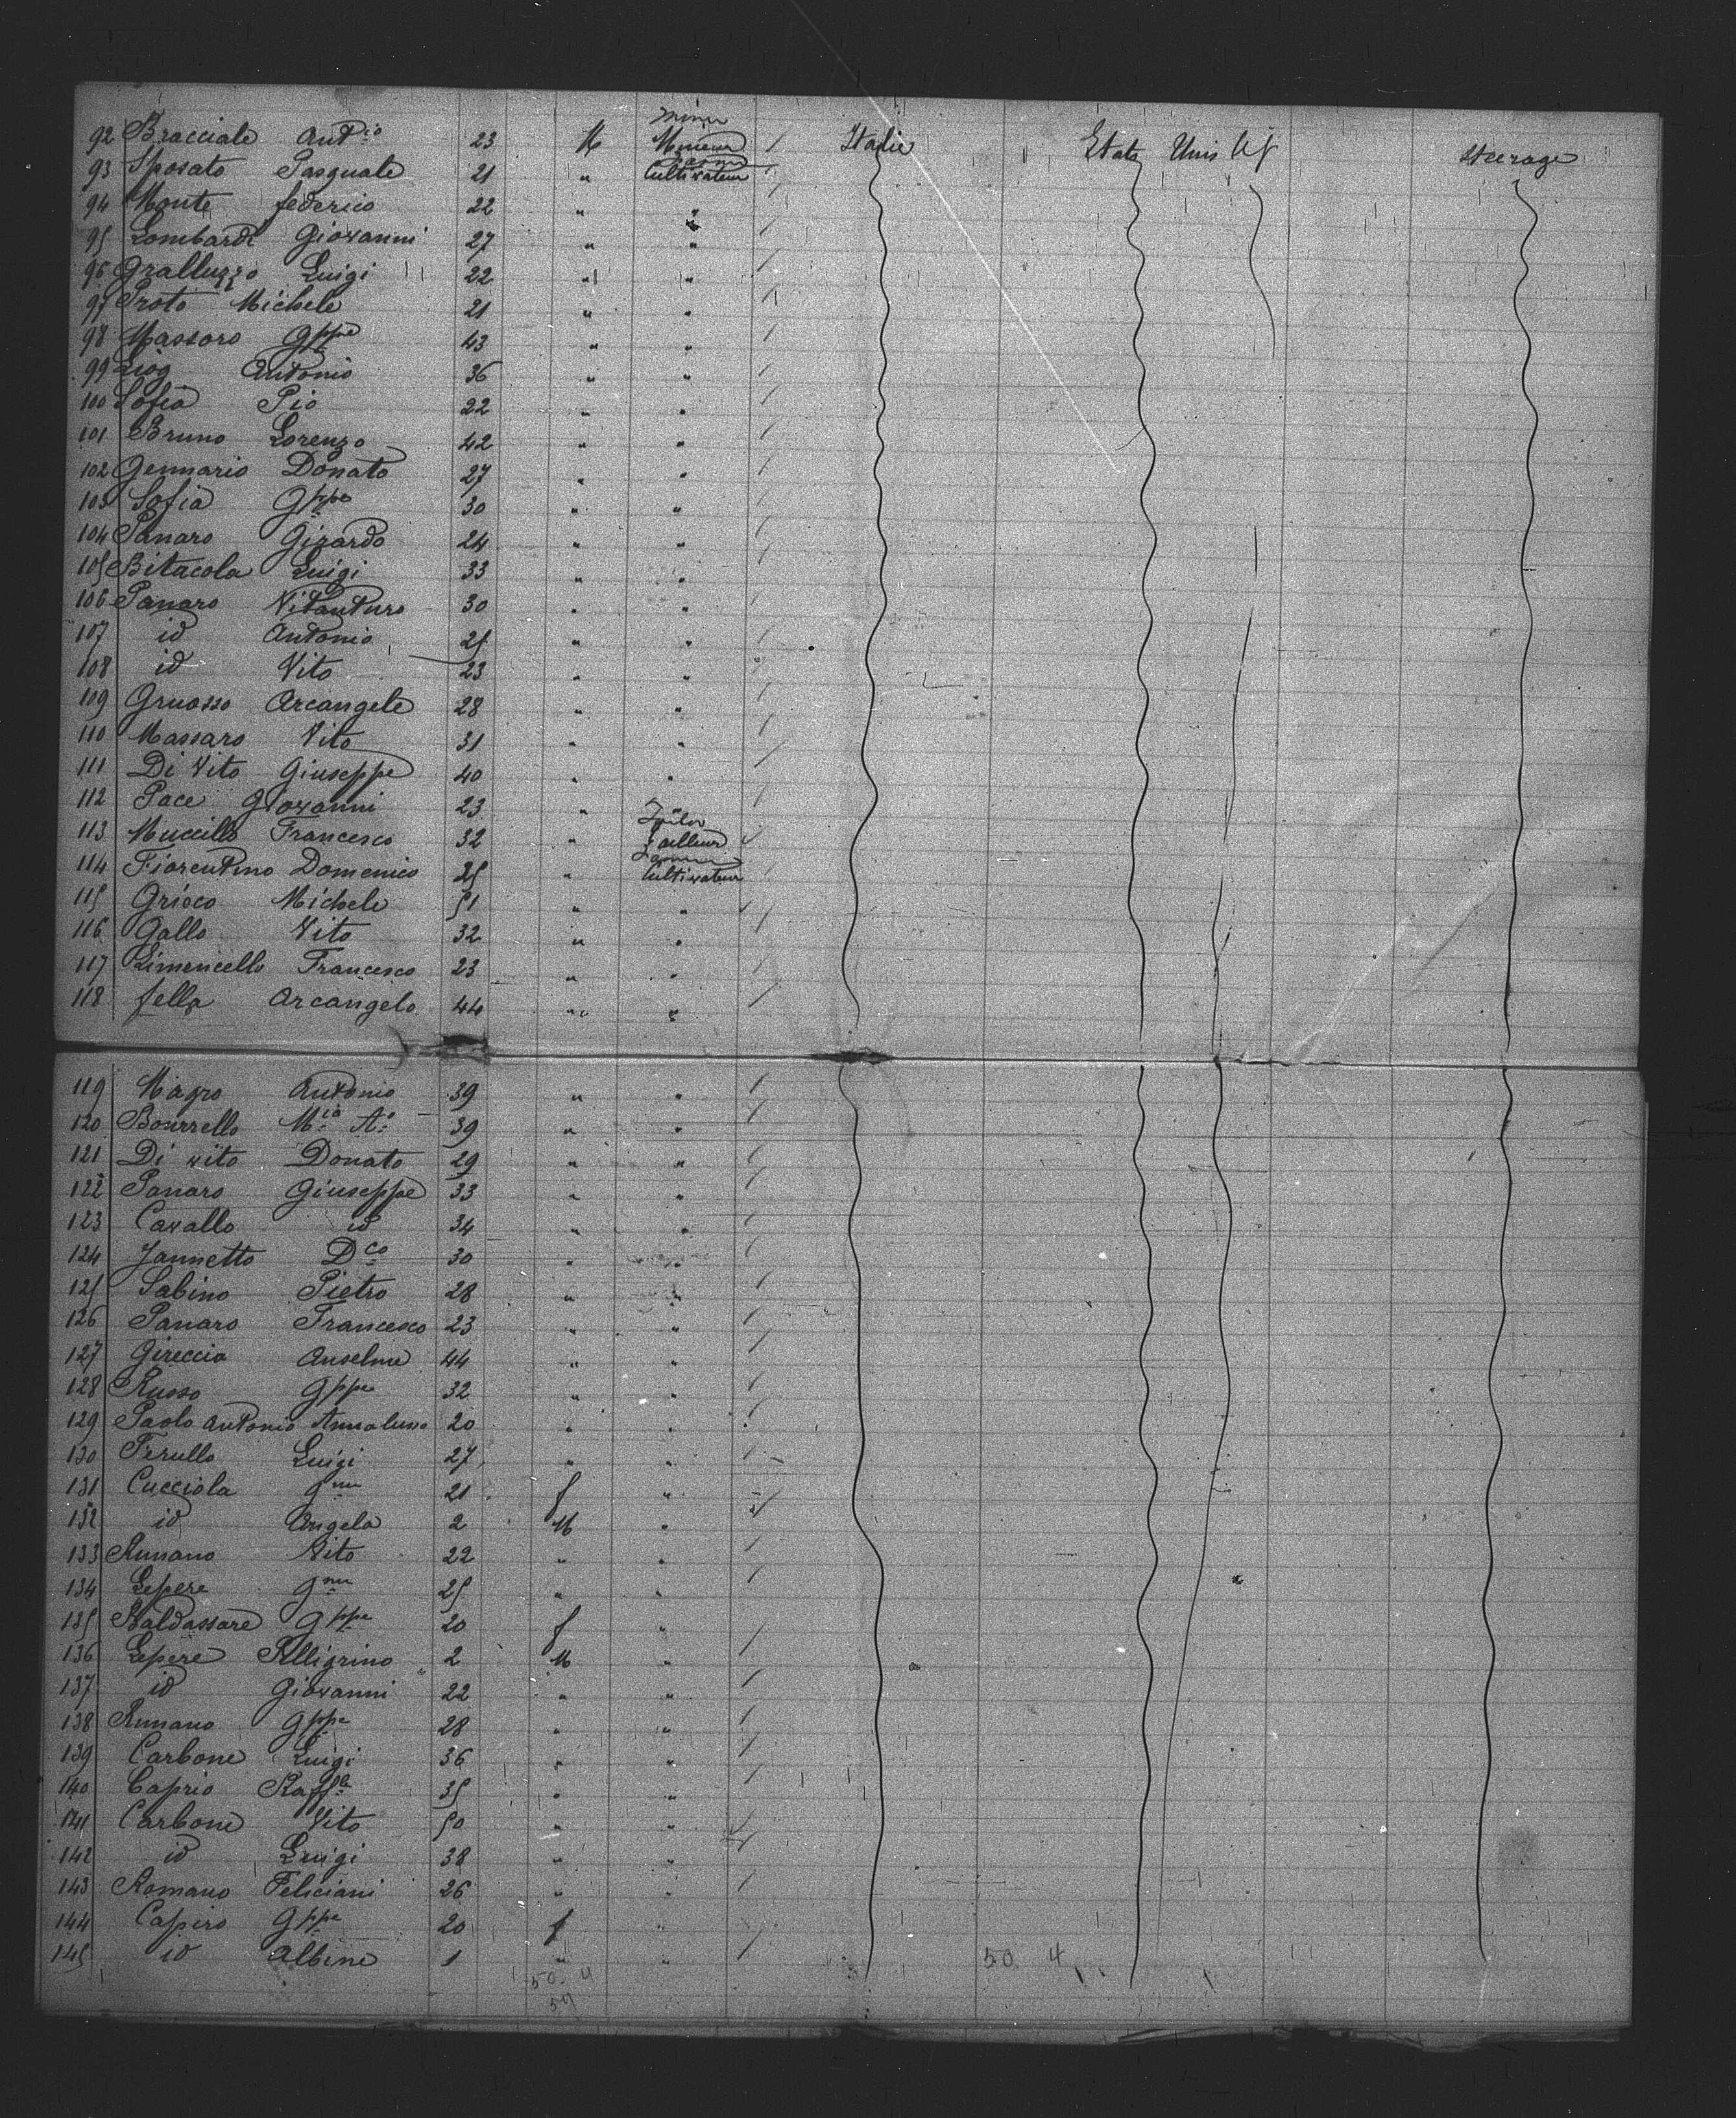 miner
92 Bracciale Antio 23 M Mineur / Italie Etats Unis steerage
farmer
93 Sposato Pasquale 21 " Cultivateur /
94 Monte federico 22 " " /
95 Lombardi Giovanni 27 " " /
96 Gralluzzo Luigi 22 " " /
97 Proto Michele 21 " " /
98 Massaro Gppe 43 " " /
99 Antonio 36 " " /
100 Sofia Pio 22 " " /
101 Bruno Lorenzo 42 " " /
102 Gennario Donato 27 " " /
103 Sofia Gppe 30 " " /
104 Panaro Girardo 24 " " /
105 Bitacola Luigi 33 " " /
106 Panaro Vitanturo 30 " " /
107 id Antonio 25 " " /
108 id Vito 23 " " /
109 Gruosso Arcangele 28 " " /
110 Massaro Vito 31 " " /
111 Di Vito Giuseppe 40 " " /
112 Pace Giovanni 23 " " /
Tailor
113 Muccillo Francesco 32 " Tailleur /
farmer
114 Fiorentino Domenico 25 " Cultivateur /
115 Grieco Michele 51 " " /
116 Gallo Vito 32 " " /
117 Limencello Francesco 23 " " /
118 fella Arcangelo 44 " " /
119 Magro Antonio 39 " " /
120 Bourrello Mia Ao 39 " " /
121 Di vito Donato 29 " " /
122 Panaro Giuseppe 33 " " /
123 Cavallo id 34 " " /
124 Jannetto Dco 30 " " /
125 Sabino Pietro 28 " " /
126 Panaro Francesco 23 " " /
127 Gireccia Anselme 44 " " /
128 Russo Gppe 32 " " /
129 Paolo Antonio 20 " " /
130 Ferullo Luigi 27 " " /
131 Cucciola Gnu 21 f " /
132 id Angela 2 M " /
133 Rumano Vito 22 " " /
134 Lepere Gnu 25 " " /
135 Baldassare Gppe 20 f " /
136 Lepere Pelligrino 2 M " /
137 id Giovanni 22 " " /
138 Rumano Gppe 28 " " /
139 Carbone Luigi 36 " " /
140 Caprio Raffle 35 " " /
141 Carbone Vito 50 " " /
142 id Luigi 38 " " /
143 Romano Feliciani 26 " " /
144 Capiro Gppe 20 f " /
145 id Albine 1 " " /
50. 4 50. 4
54